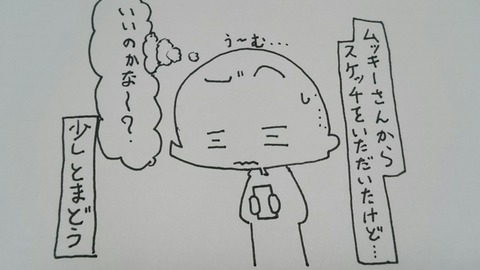 ムッキーさんから
スケッチをいただいたけど…
う〜む…
いいのかな〜?
少しとまどう